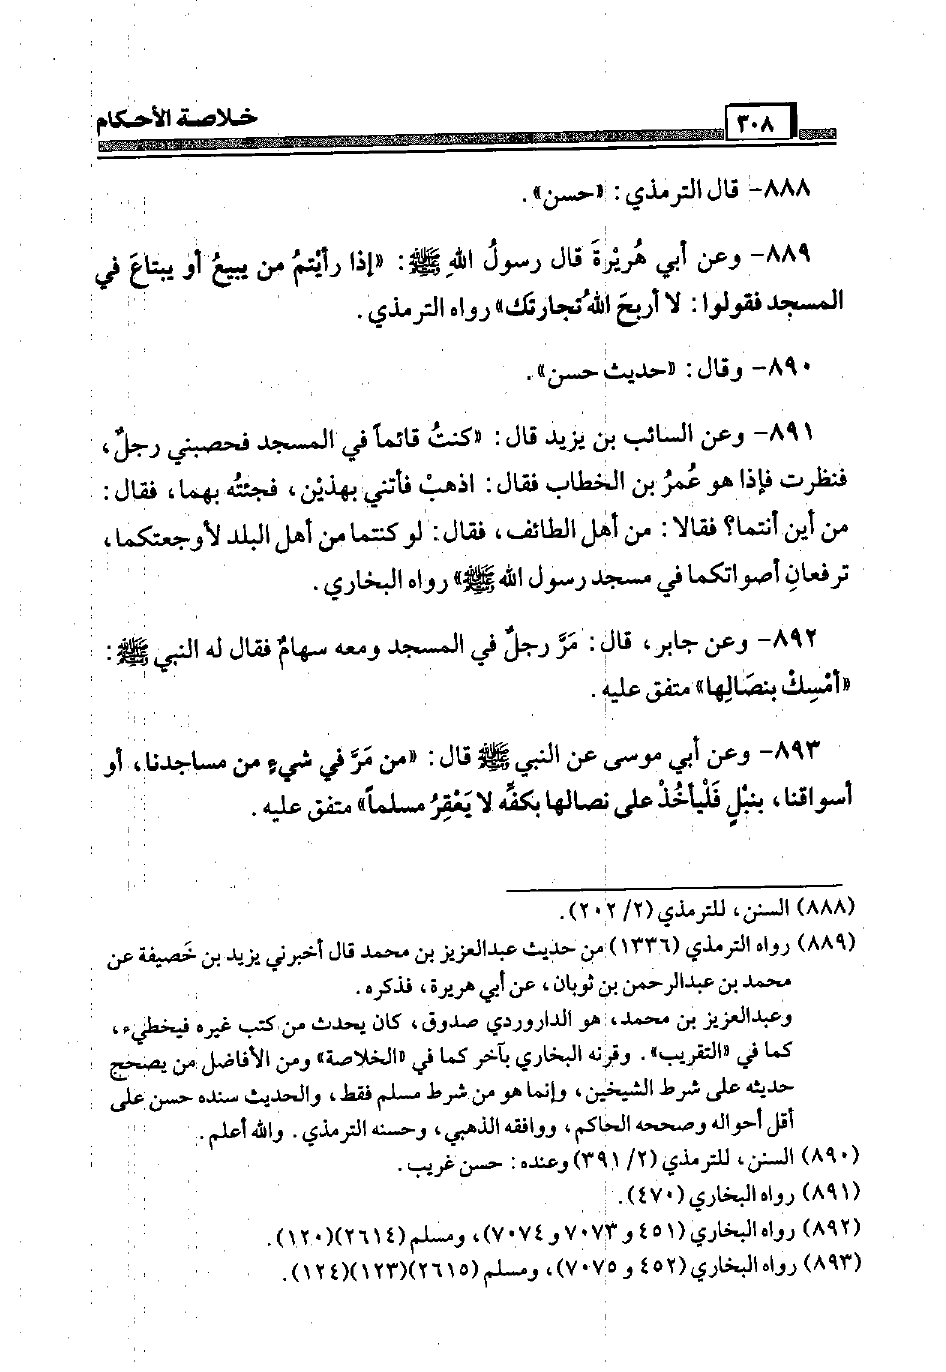 ٣٠٨ خلاصة الأحكام
٨٨٨- قال الترمذي: «حسن».
٨٨٩- وعن أبي هُريْرةَ قال رسولُ اللهِ ﷺ: «إذا رأيْتمُ من يبيعُ أو يبتاعَ في
المسجد فقولوا: لا أربحَ اللهُ تجارتَك» رواه الترمذي.
٨٩٠- وقال: «حديث حسن».
٨٩١- وعن السائب بن يزيد قال: «كنتُ قائماً في المسجد فحصبني رجلٌ،
فنظرت فإذا هو عُمرُ بن الخطاب فقال: اذهبْ فأتني بهذيْن، فجئتُه بهما، فقال:
من أين أنتما؟ فقالا: من أهل الطائف، فقال: لو كنتما من أهل البلد لأوجعتكما،
ترفعانِ أصواتكما في مسجد رسول الله ﷺ» رواه البخاري.
٨٩٢- وعن جابر، قال: مَرَّ رجلٌ في المسجد ومعه سهامٌ فقال له النبي ﷺ:
«أمْسِكْ بنصَالِها» متفق عليه.
٨٩٣- وعن أبي موسى عن النبي ﷺ قال: «من مَرَّ في شيءٍ من مساجدنا، أو
أسواقنا، بنبْلٍ فَلْيأخُذْ على نصالها بكفِّه لا يَعْقِرُ مسلماً» متفق عليه.
(٨٨٨) السنن، للترمذي (٢/ ٢٠٢).
(٨٨٩) رواه الترمذي (١٣٣٦) من حديث عبدالعزيز بن محمد قال أخبرني يزيد بن خَصيفة عن
محمد بن عبدالرحمن بن ثوبان، عن أبي هريرة، فذكره.
وعبدالعزيز بن محمد، هو الداروردي صدوق، كان يحدث من كتب غيره فيخطيء،
كما في «التقريب». وقرنه البخاري بآخر كما في «الخلاصة» ومن الأفاضل من يصحح
حديثه على شرط الشيخين، وإنما هو من شرط مسلم فقط، والحديث سنده حسن على
أقل أحواله وصححه الحاكم، ووافقه الذهبي، وحسنه الترمذي. والله أعلم.
(٨٩٠) السنن، للترمذي (٢/ ٣٩١) وعنده: حسن غريب.
(٨٩١) رواه البخاري (٤٧٠).
(٨٩٢) رواه البخاري (٤٥١ و ٧٠٧٣ و ٧٠٧٤)، ومسلم (٢٦١٤)(١٢٠).
(٨٩٣) رواه البخاري (٤٥٢ و ٧٠٧٥)، ومسلم (٢٦١٥)(١٢٣)(١٢٤).